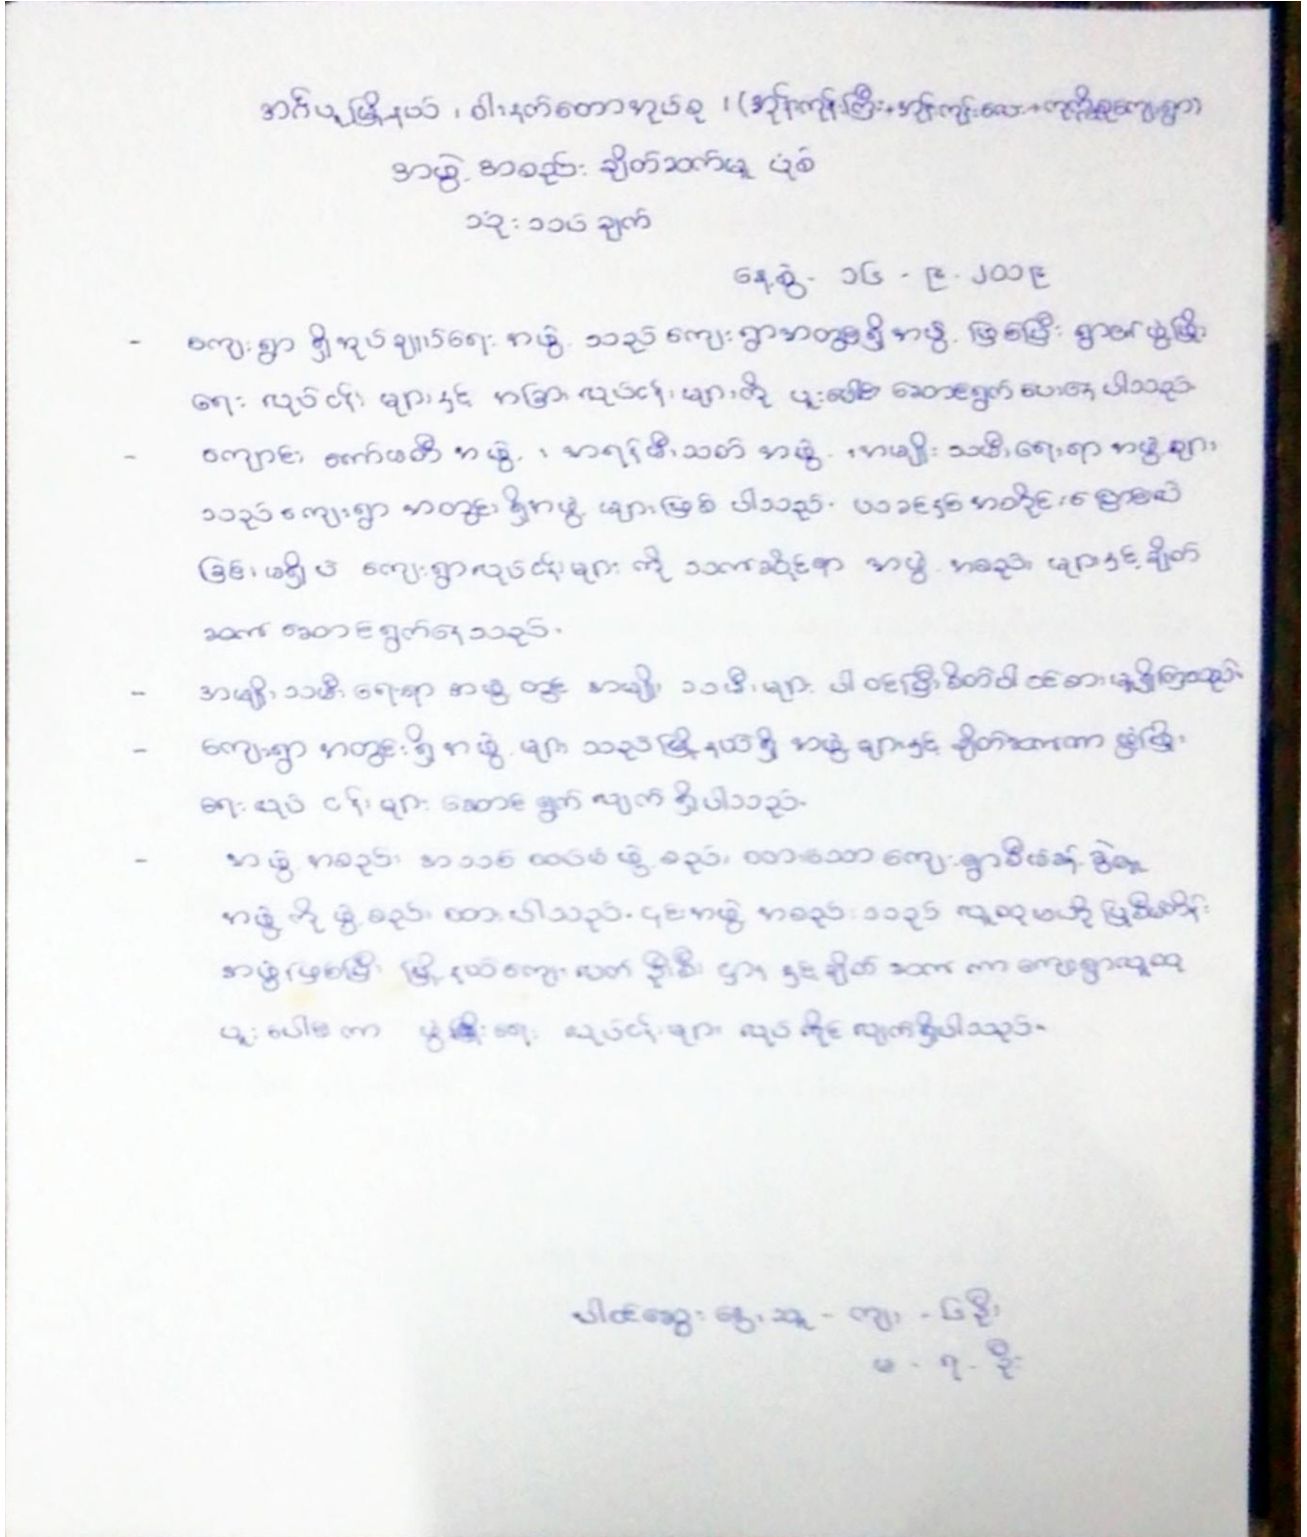 အင်ပူမြို့နယ်၊ ဝါးနက်တောအုပ်စု၊ (အုန်းကုန်းကြီး+အုန်းကုန်းလေး+ကုက္ကိုစုကျေးရွာ)
အဖွဲ့အစည်း ချိတ်ဆက်မှု ပုံစံ
သုံးသပ်ချက်
နေ့စွဲ - ၁၆ - ၉ - ၂၀၁၉
- ကျေးရွာ ရှိအုပ်ချုပ်ရေး အဖွဲ့ သည် ကျေးရွာအတွင်းရှိ အဖွဲ့ ဖြစ်ပြီး ရွာ၏ဖွံ့ဖြိုး
ရေး လုပ်ငန်း များနှင့် အခြား လုပ်ငန်း များကို ပူးပေါင်း ဆောင်ရွက် ပေးနေ ပါသည်။
- ကျောင်း ကော်မတီ အဖွဲ့၊ အရန်မီးသတ် အဖွဲ့၊ အမျိုး သမီးရေးရာ အဖွဲ့ များ
သည် ကျေးရွာ အတွင်းရှိအဖွဲ့ များဖြစ် ပါသည်။ ယခင်နှစ် အတိုင်းပြောင်းလဲ
ခြင်းမရှိပဲ ကျေးရွာလုပ်ငန်းများ ကို သက်ဆိုင်ရာ အဖွဲ့ အစည်း များနှင့် ချိတ်
ဆက် ဆောင်ရွက်နေသည်။
- အမျိုးသမီးရေးရာ အဖွဲ့ တွင် အမျိုး သမီးများ ပါဝင်ပြီးစိတ်ပါဝင်စားမှုရှိကြသည်။
- ကျေးရွာ အတွင်းရှိ အဖွဲ့ များ သည်မြို့နယ်ရှိ အဖွဲ့ များနှင့် ချိတ်ဆက်ကာ ဖွံ့ဖြိုး
ရေး လုပ် ငန်းများ ဆောင်ရွက် လျက် ရှိပါသည်။
- အဖွဲ့ အစည်း အသစ် ထပ်မံ ဖွဲ့စည်း ထားသော ကျေးရွာစီမံခန့်ခွဲမှု
အဖွဲ့ကို ဖွဲ့စည်း ထားပါသည်။ ၎င်းအဖွဲ့ အစည်းသည် လူထုဗဟိုပြုစီမံကိန်း
အဖွဲ့ဖြစ်ပြီး မြို့နယ်ကျေးလက် ဦးစီး ဌာန နှင့်ချိတ် ဆက် ကာ ကျေးရွာလူထု
ပူးပေါင်းကာ ဖွံ့ဖြိုးရေး လုပ်ငန်းများ လုပ်ကိုင် လျက်ရှိပါသည်။
ပါဝင်ဆွေးနွေးသူ - ကျား - ၆ ဦး
မ - ၇ - ဦး